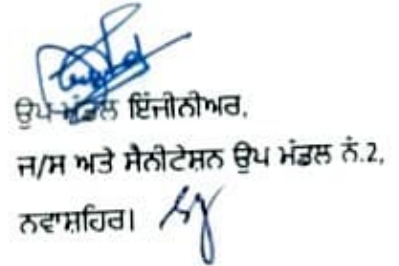 ਉਪ-ਮੰਡਲ ਇੰਜੀਨੀਅਰ,
ਜ/ਸ ਅਤੇ ਸੈਨੀਟੇਸ਼ਨ ਉਪ ਮੰਡਲ ਨੰ.2,
ਨਵਾਸ਼ਹਿਰ।